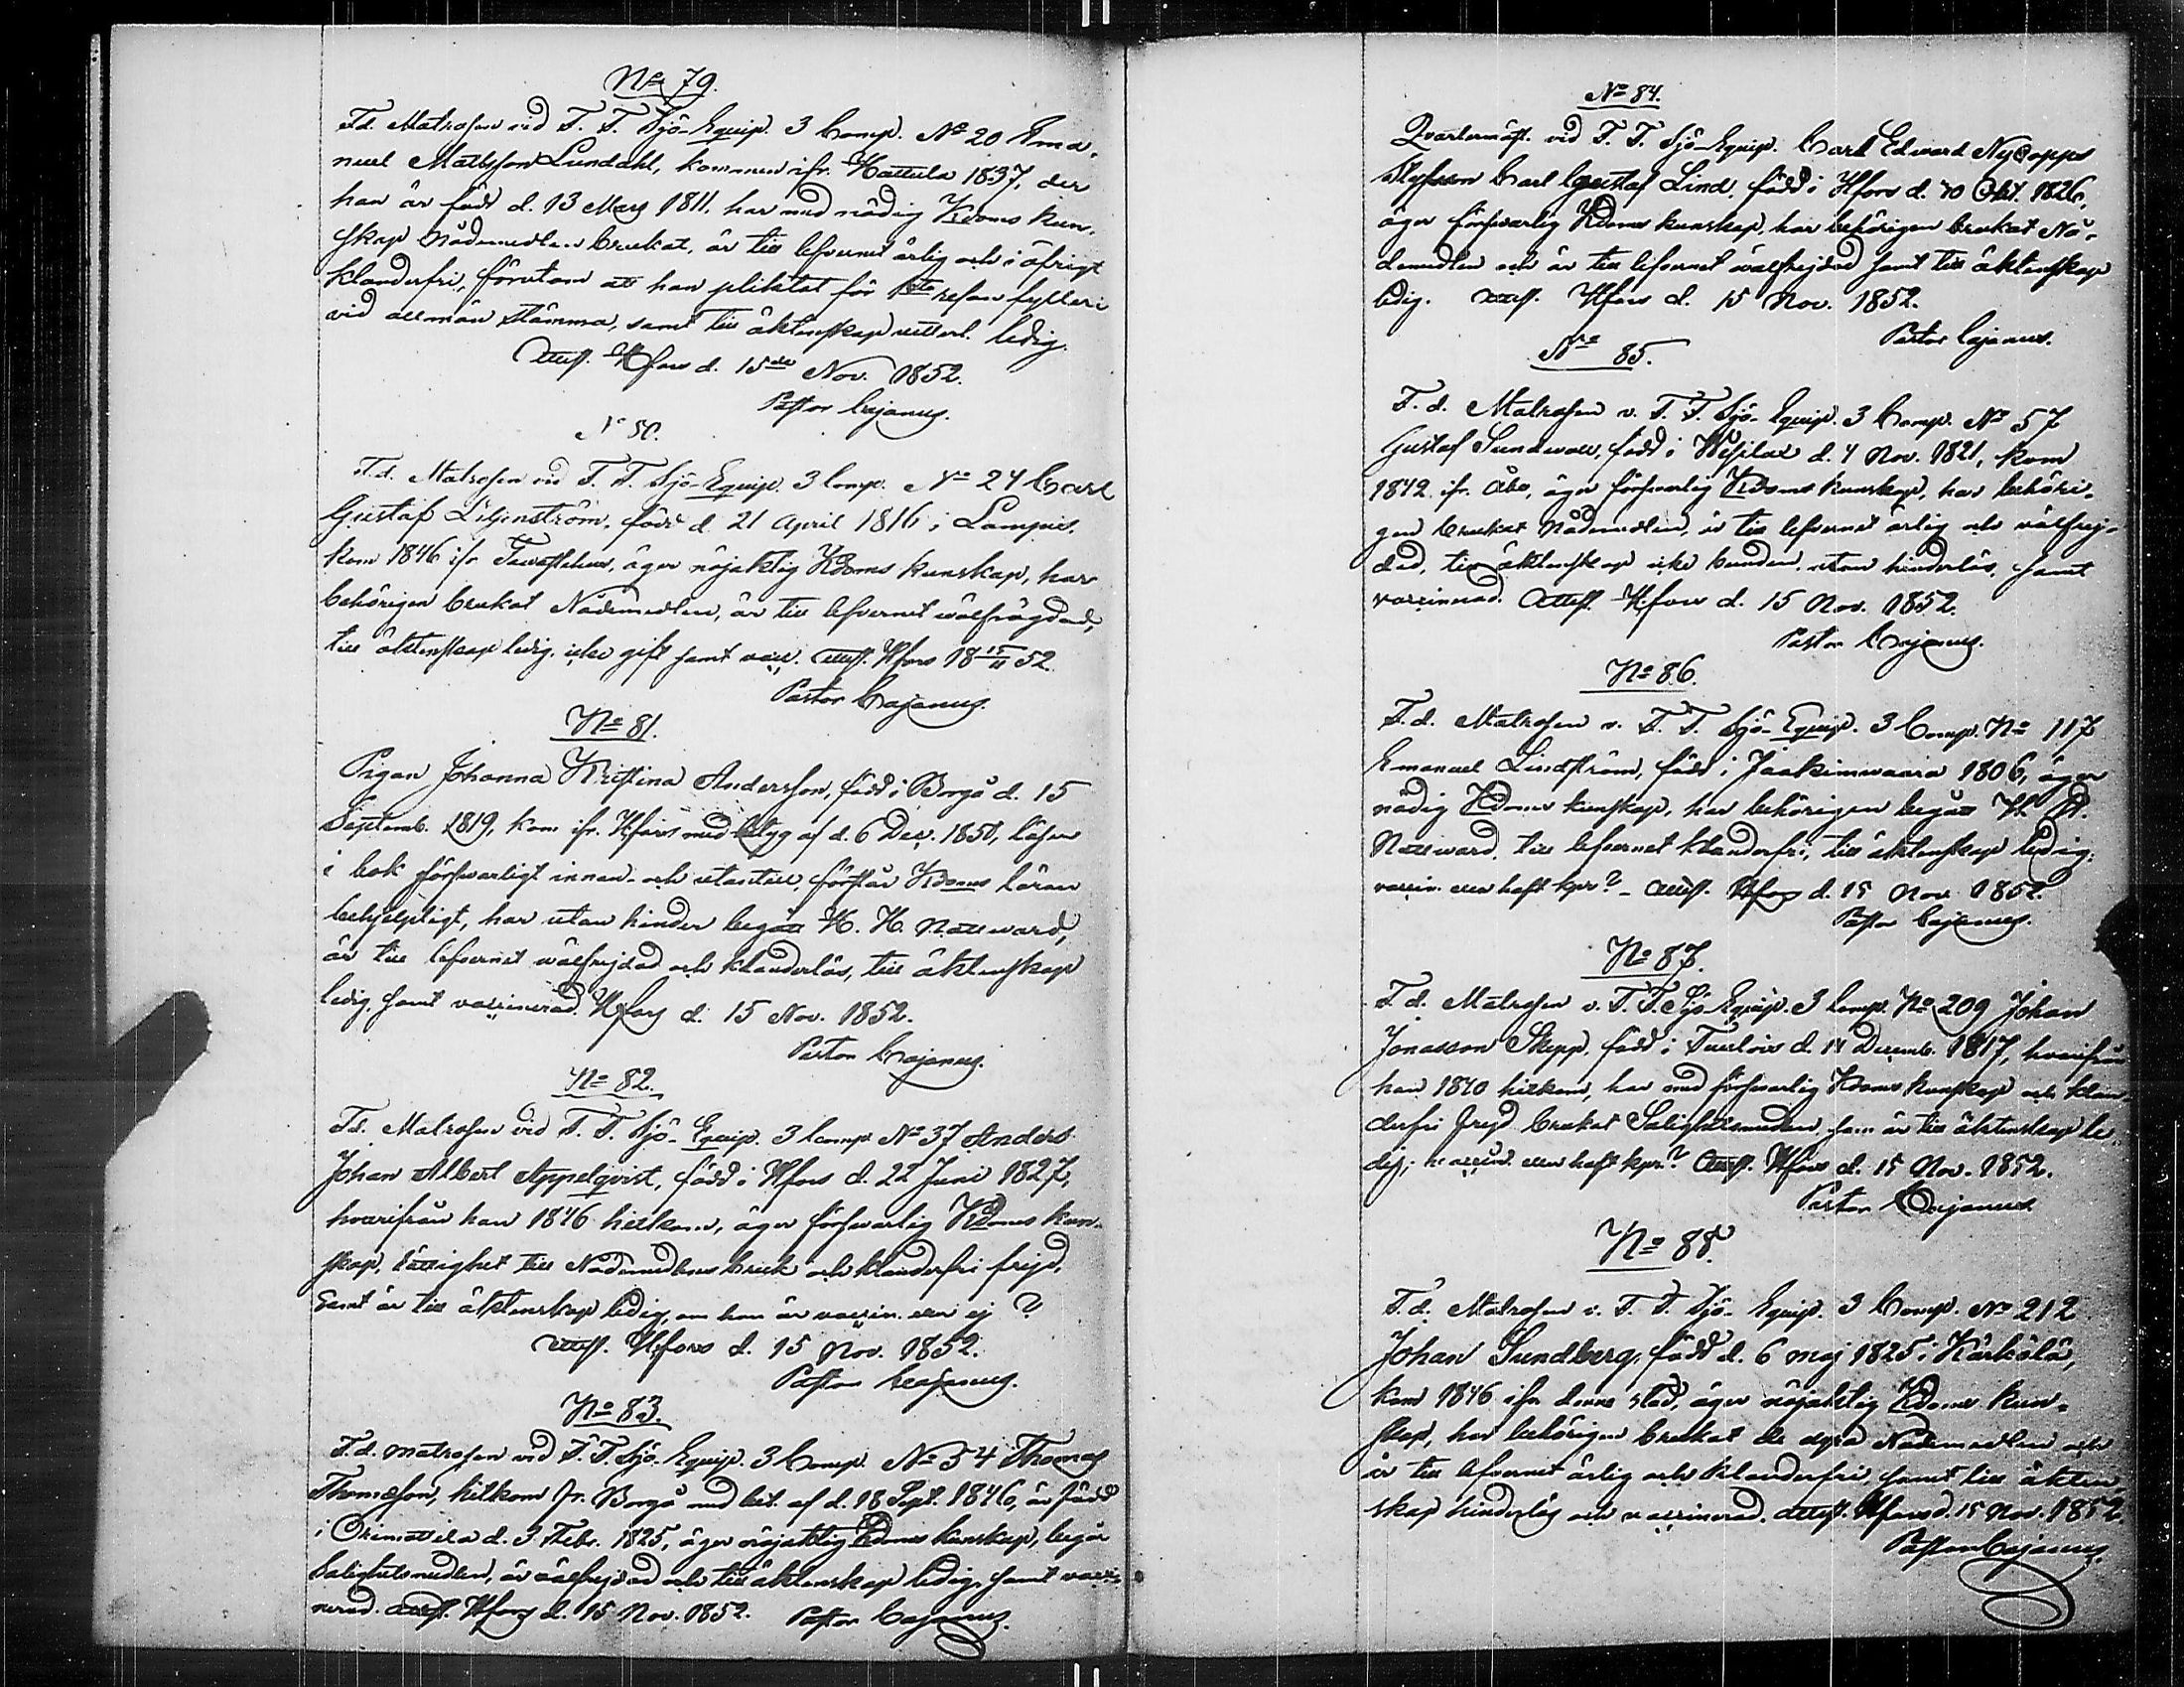 No 79.
F.d. Matrosen vid F. F. Sjö-Equip. 3 Comp. No 20 Ema-
nuel Mattsson Lundahl, kommen ifr. Hattula 1837, der
han är född d. 13 Mars 1811. har med nödig Kdoms kun-
skap Nådemedlen brukat, är till lefvernet ärlig och i öfrigt
klanderfri, förutom att han pliktat för 1sta resan fylleri
vid allmän stämma, samt till äktenskap ledig.
Attest. Hfors d. 15de Nov. 1852.
Pastor Cajanus.
N 80.
F.d. Matrosen vid F. F. Sjö-Equip. 3 Comp. No 24 Carl
Gustaf Liljenström, född d. 21 April 1816 i Lampis.
kom 1846 ifr Tavastehus, äger nöjaktig Kdoms kunskap, har
behörigen brukat Nådemedlen, är till lefvernet wälfrägdad,
till äktenskap ledig, icke gift samt vacc. Attest. Hfors 18 15/11 52.
Pastor Cajanus.
No 81.
Pigan Johanna Kristina Andersson, född i Borgå d. 15
Septemb. 1819, kom ifr. Hfors med betyg af d. 6 Dec. 1850, läser
i bok försvarligt innan- och utantill, förstår Kdoms läran
behjelpligt, har utan hinder begått H. H. Nattward,
är till lefvernet wälfrejdad och klanderlös, till äktenskap
ledig, samt vaccinerad. Hfors d. 15 Nov. 1852.
Pastor Cajanus.
No 82.
F.d. Matrosen vid F. F. Sjö-Equip. 3 Comp No 37 Anders
Johan Albert Appelqvist, född i Hfors d. 22 Juni 1827,
hvarifrån han 1846 hitkom, äger försvarlig Kdoms kun-
skap, rättighet till Nådemedlens bruk och klanderfri frejd,
samt är till äktenskap ledig, om han är vaccin. eller ej ?
Attest. Hfors d. 15 Nov. 1852.
Pastor Cajanus.
No 83.
F.d. matrosen vid F. F. Sjö-Equip. 3 Comp. No 54 Thomas
Thomasson, hitkom fr. Borgå med bet. af d. 18 Sept. 1846, är född
i Orimattila d. 3 Febr. 1825, äger nöjaktig Kdoms kunskap, begår
Salighetsmedlen, är wälfrejdad och till äktenskap ledig, samt vacci-
nerad. Attest. Hfors d. 15 Nov. 1852. Pastor Cajanus.
No 84.
Qvartermäst. vid F. F. Sjö-Equip. Carl Edvard Nycopps
Styfson Carl Gustaf Lind, född i Hfors d. 10 Okt. 1826,
äger försvarlig Kdoms kunskap, har behörigen brukat Nå-
demedlen och är till lefvernet wälfrejdad samt till äktenskap
ledig. Attest. Hfors d. 15 Nov. 1852.
Pastor Cajanus.
No 85.
F. d. Matrosen v. F. F. Sjö-Equip. 3 Comp. No 57
Gustaf Sundwall, född i Wesilax d. 4 Nov. 1821, kom
1842 ifr. Åbo, äger försvarlig Kdoms kunskap, har behöri-
gen brukat Nådemedlen, är till lefvernet ärlig och välfrej-
dad, till äktenskap icke bunden utan hinderlös, samt
vaccinerad. Attest. Hfors d. 15 Nov. 1852.
Pastor Cajanus.
No 86.
F.d. Matrosen v. F. F. Sjö-Equip. 3 Comp. No 117
Emanuel Lindström, född i Jaakimwaara 1806, äger
nödig Kdoms kunskap, har behörigen begått H. H.
Nattward, till lefvernet klanderfri, till äktenskap ledig;
vaccin. eller haft kpr.? – Attest. Hfors d. 15 Nov. 1852.
Pastor Cajanus.
No 87.
F.d. Matrosen v. F. F. Sjö-Equip. 3 Comp. No 209 Johan
Jonasson Skepp, född i Tuulois d. 14 Decemb. 1817, hvarifrån
han 1840 hitkom, har med försvarlig Kdoms kunskap och klan-
derfri frejd brukat Salighetsmedlen, är till äktenskap le-
dig; vaccin. eller haft kpr.? Attest. Hfors d. 15 Nov. 1852.
Pastor Cajanus
No 88.
F.d. Matrosen v. F. F. Sjö-Equip. 3 Comp. No 212
Johan Sundberg, född d. 6 maj 1825 i Kärkölä,
kom 1846 ifr. denna stad, äger nöjaktig Kdoms kun-
skap, har behörigen brukat de dyra Nådemedlen och
är till lefvernet ärlig och klanderfri samt till äkten-
skap hinderlös och vaccinerad. Attest. Hfors d. 15 Nov. 1852.
Pastor Cajanus.